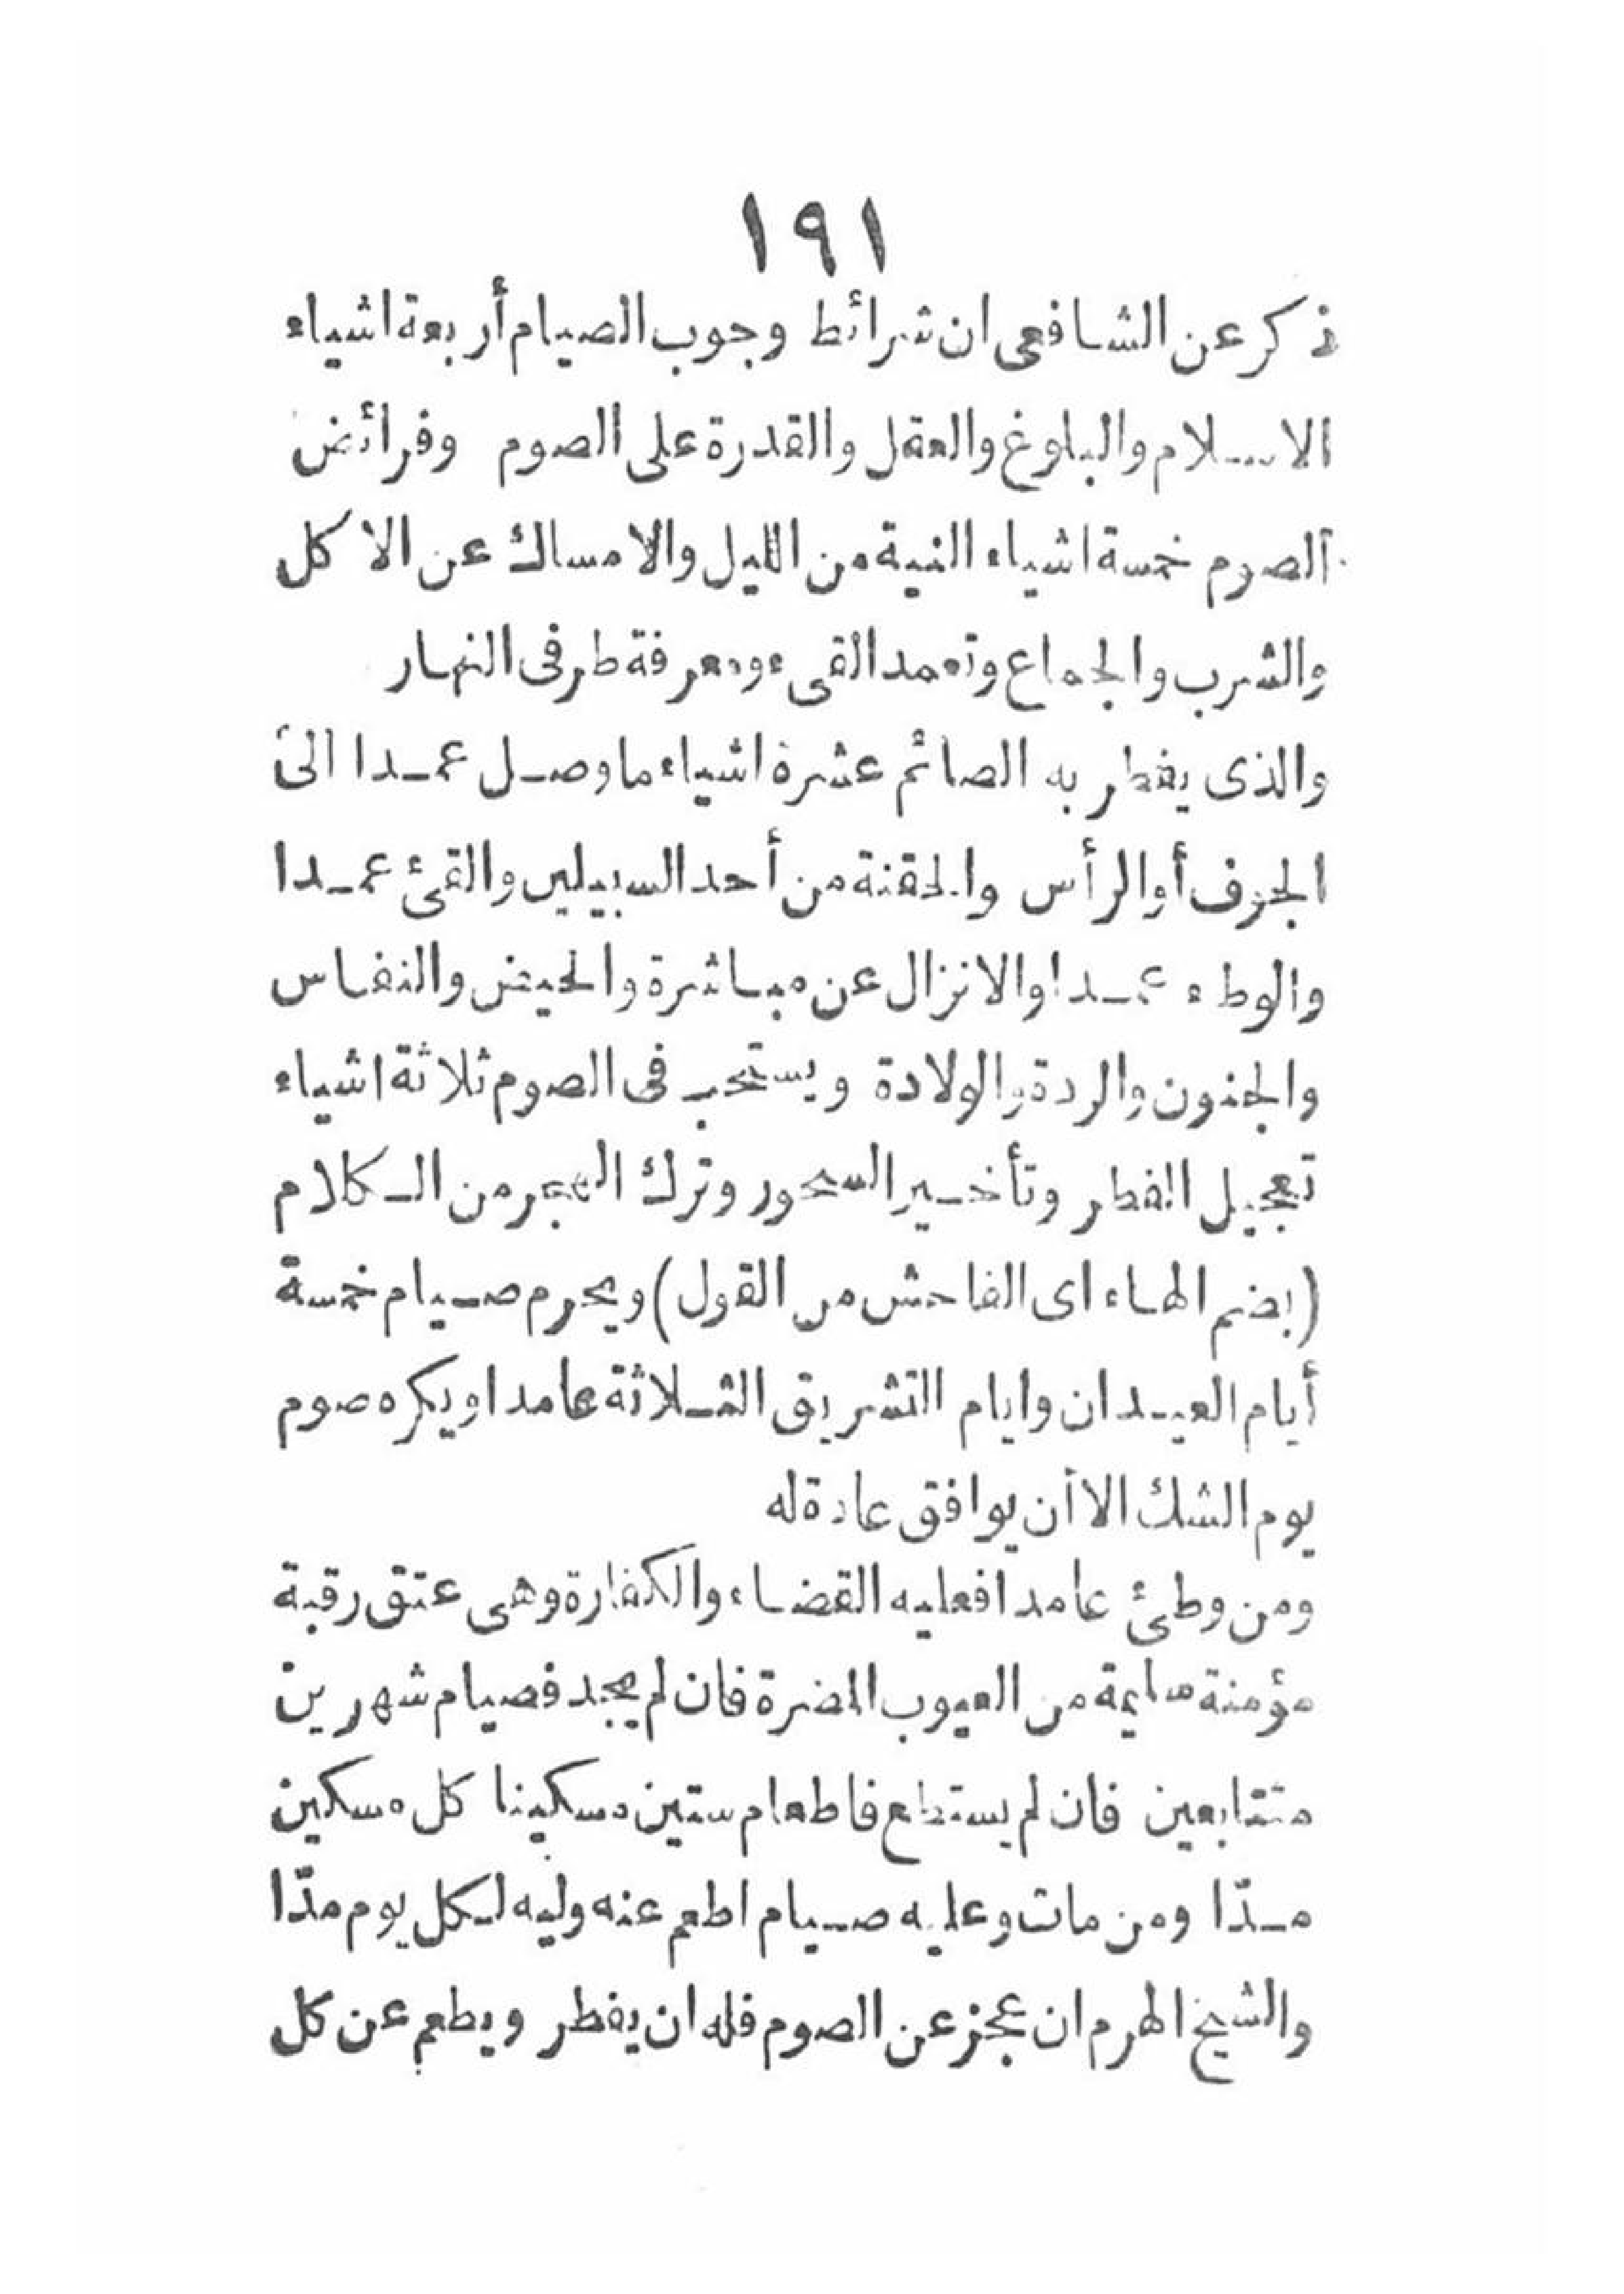 ١٩١
ذكر عن الشافعى ان شرائط وجوب الصيام أربعة اشياء
الاسلام والبلوغ والعقل والقدرة على الصوم وفرائض
الصوم خمسة اشياء النية من الليل والامساك عن الاكل
والشرب والجماع وتعمد القىء ومعرفة طرفى النهار
والذى يفطر به الصائم عشرة اشياء ما وصل عمدا الى
الجوف أو الرأس والحقنة من أحد السبيلين والقئ عمدا
والوطء عمدا والانزال عن مباشرة والحيض والنفاس
والجنون والردة والولادة ويستحب فى الصوم ثلاثة اشياء
تعجيل الفطر وتأخير السحور وترك الهجر من الكلام
(بضم الهاء اى الفاحش من القول) ويحرم صيام خمسة
أيام العيدان وايام التشريق الثلاثة عامدا ويكره صوم
يوم الشك الا أن يوافق عادة له
ومن وطئ عامدا فعليه القضاء والكفارة وهى عتق رقبة
مؤمنة سليمة من العيوب المضرة فان لم يجد فصيام شهرين
متتابعين فان لم يستطع فاطعام ستين مسكينا كل مسكين
مدّا ومن مات وعليه صيام اطعم عنه وليه لكل يوم مدّا
والشيخ الهرم ان عجز عن الصوم فله ان يفطر ويطعم عن كل